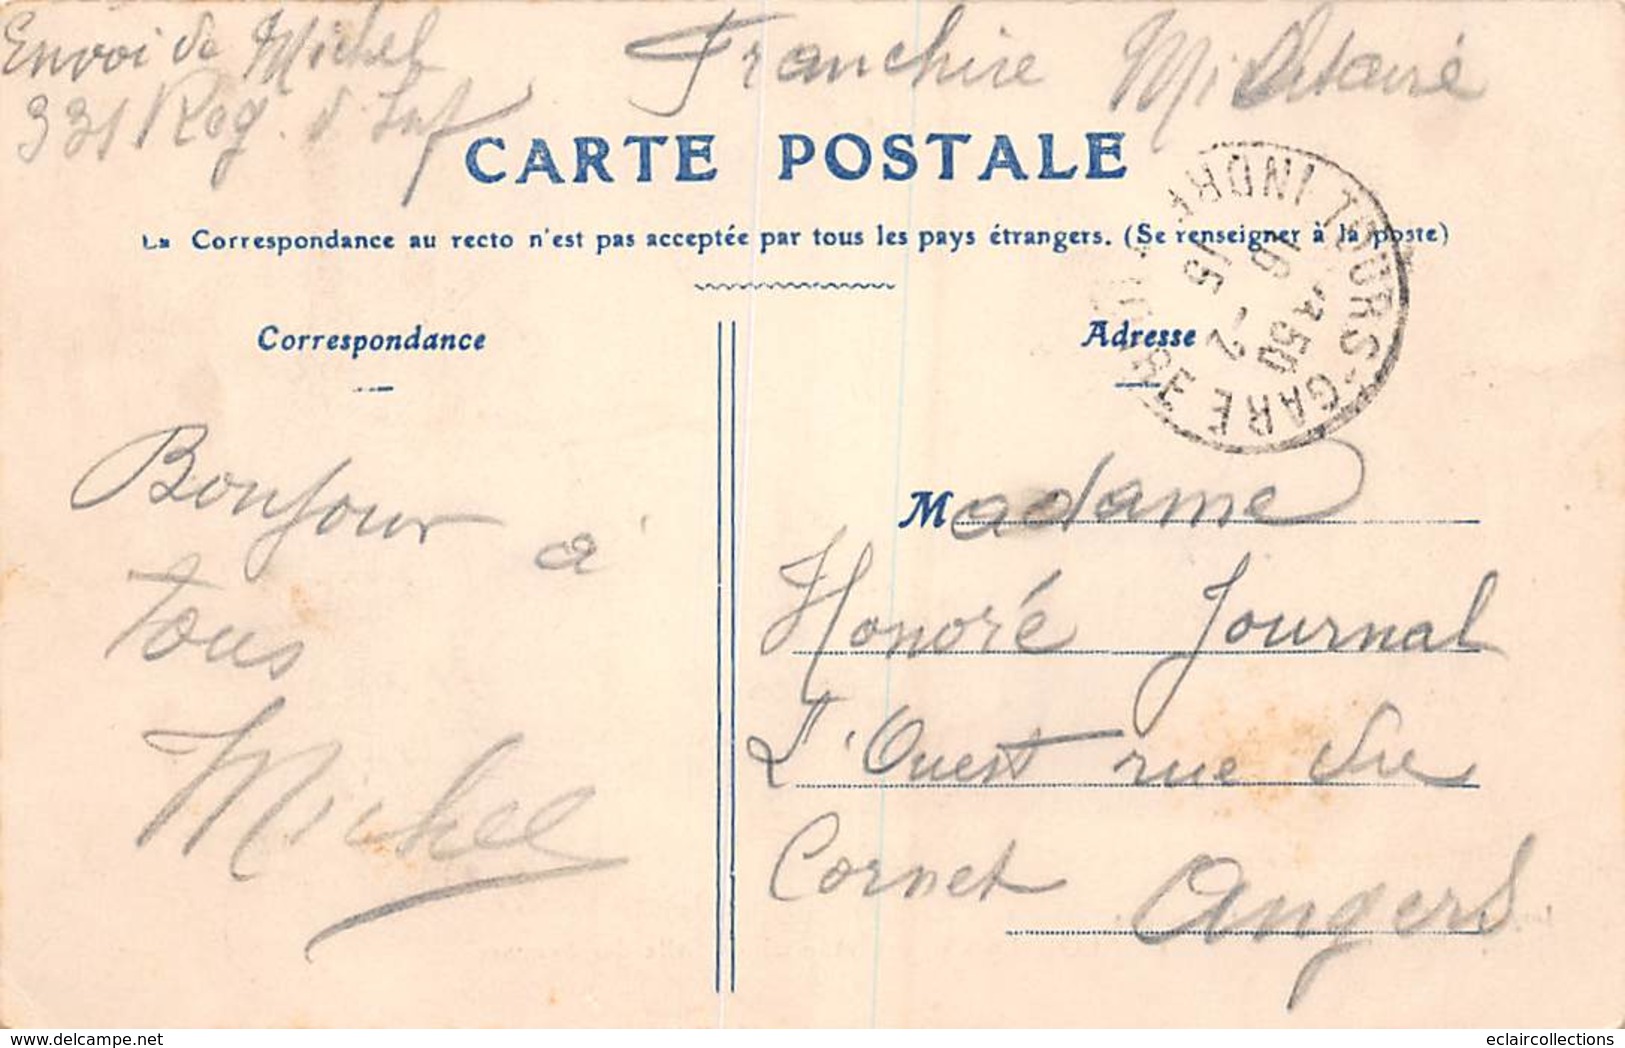 Envoi de Michel
331 Reg. d'Inf
Franchise Militaire
CARTE POSTALE
La Correspondance au recto n'est pas acceptée par tous les pays étrangers. (Se renseigner à la poste)
Correspondance
Adresse
TOURS-GARE
INDRE
50
16 - 2
15
Bonjour à
tous
Michel
Madame
Honoré Journal
L'Ouest rue du
Cornet Angers
www.delcampe.net
eclaircollections